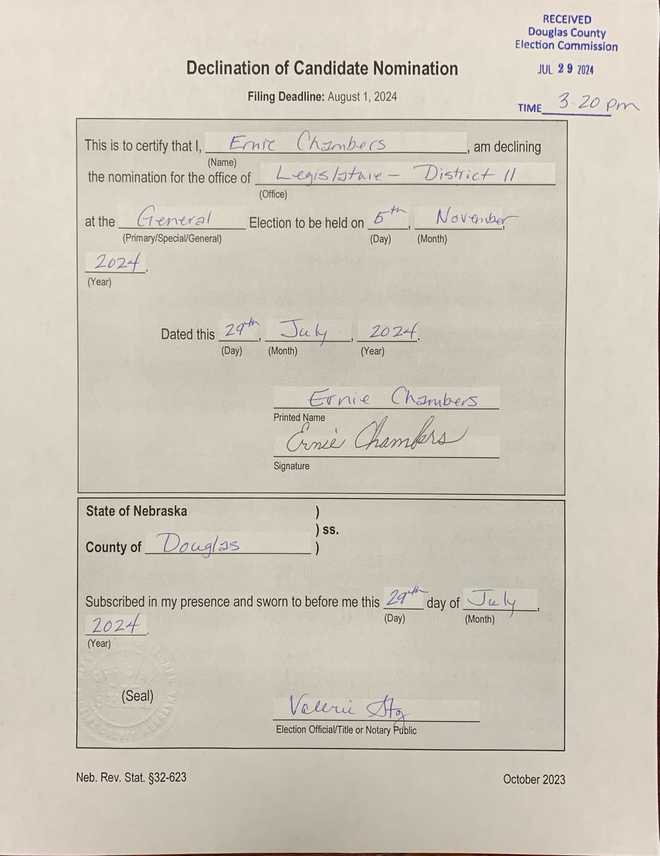 RECEIVED
Douglas County
Election Commission
JUL 29 2024
TIME 3-20 pm
Declination of Candidate Nomination
Filing Deadline: August 1, 2024
This is to certify that I, Ernie Chambers, am declining
(Name)
the nomination for the office of Legislature - District 11
(Office)
at the General Election to be held on 5th, November,
(Primary/Special/General) (Day) (Month)
2024.
(Year)
Dated this 29th, July, 2024.
(Day) (Month) (Year)
Ernie Chambers
Printed Name
Ernie Chambers
Signature
State of Nebraska )
) ss.
County of Douglas )
Subscribed in my presence and sworn to before me this 29th day of July,
(Day) (Month)
2024.
(Year)
(Seal)
Valerie
Election Official/Title or Notary Public
Neb. Rev. Stat. §32-623 October 2023